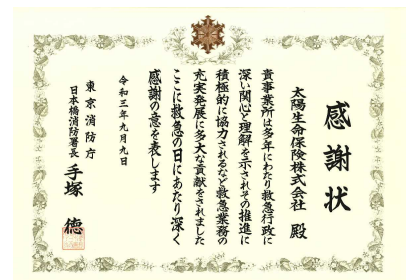 感謝状
太陽生命保険株式会社 殿
貴事業所は多年にわたり救急行政に
深い関心と理解を示されその推進に
積極的に協力されるなど救急業務の
充実発展に多大な貢献をされました
ここに救急の日にあたり深く
感謝の意を表します
令和三年九月九日
東京消防庁
日本橋消防署長 手塚 徳